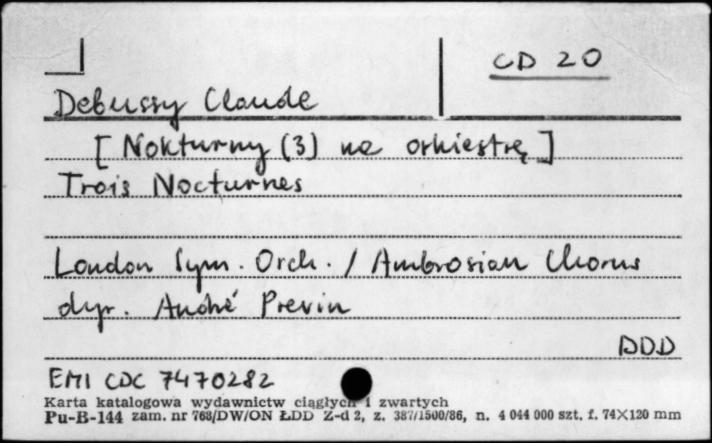 CD 20
Debussy Claude
[Nokturny (3) na orkiestrę]
Trois Nocturnes
London Sym. Orch. / Ambrosian Chorus
dyr. André Previn
DDD
EMI CDC 7470282
Karta katalogowa wydawnictw ciągłych i zwartych
Pu-B-144 zam. nr 768/DW/ON ŁDD Z-d 2, z. 387/1500/86, n. 4 044 000 szt. f. 74×120 mm